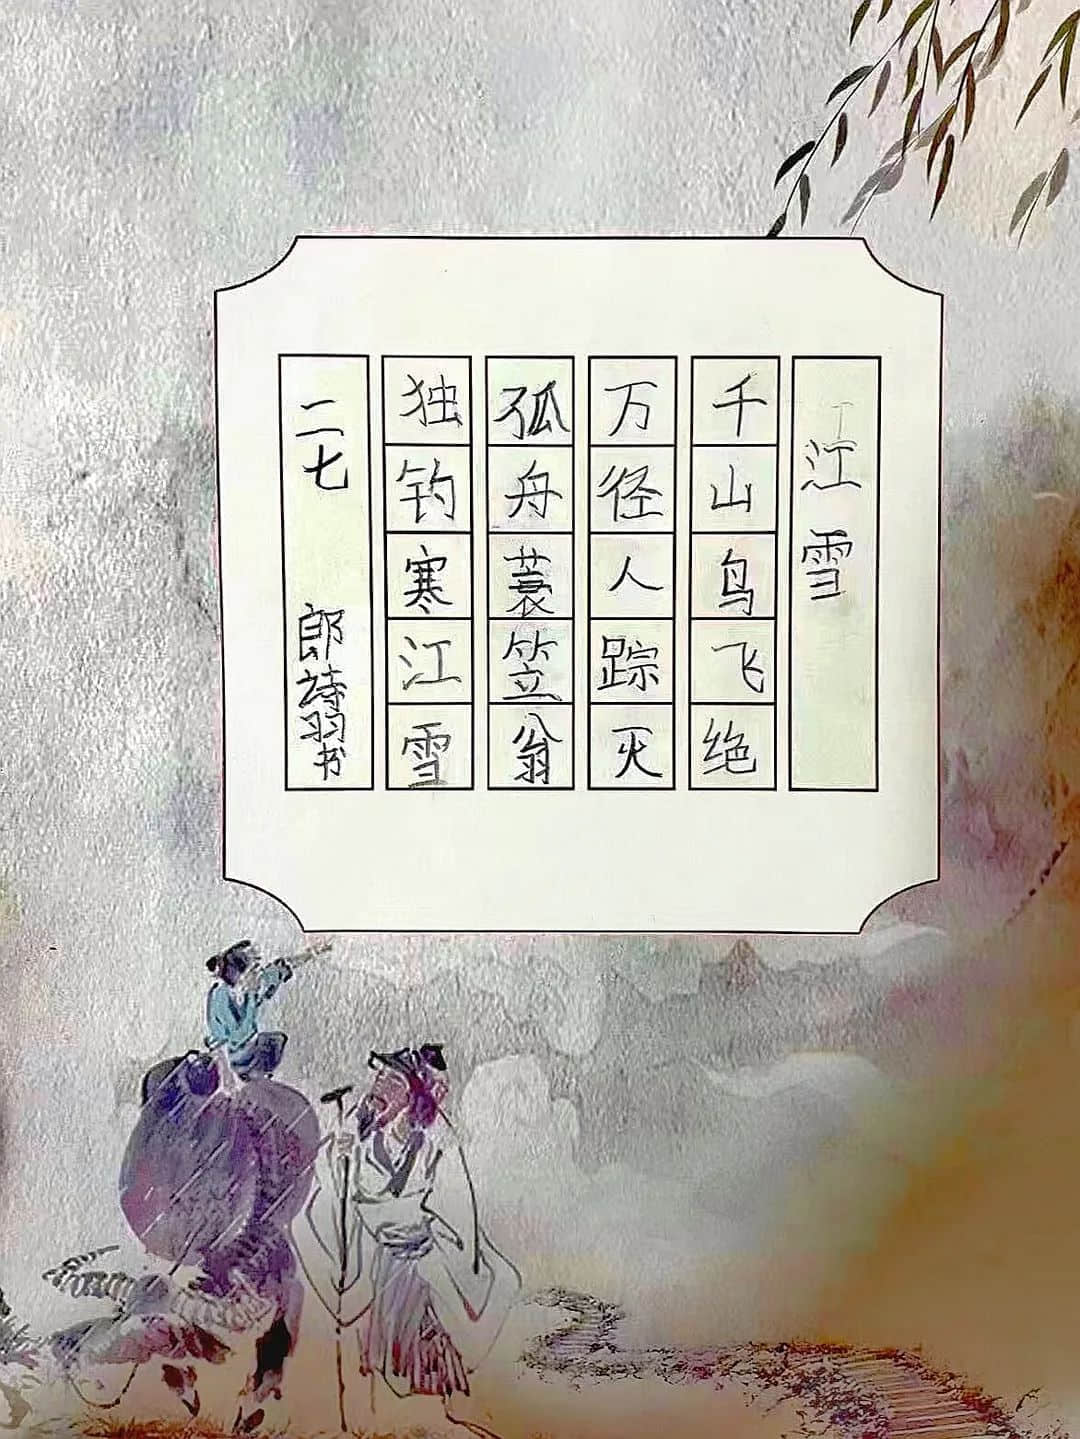 江雪
千山鸟飞绝
万径人踪灭
孤舟蓑笠翁
独钓寒江雪
二七 郎诗羽书